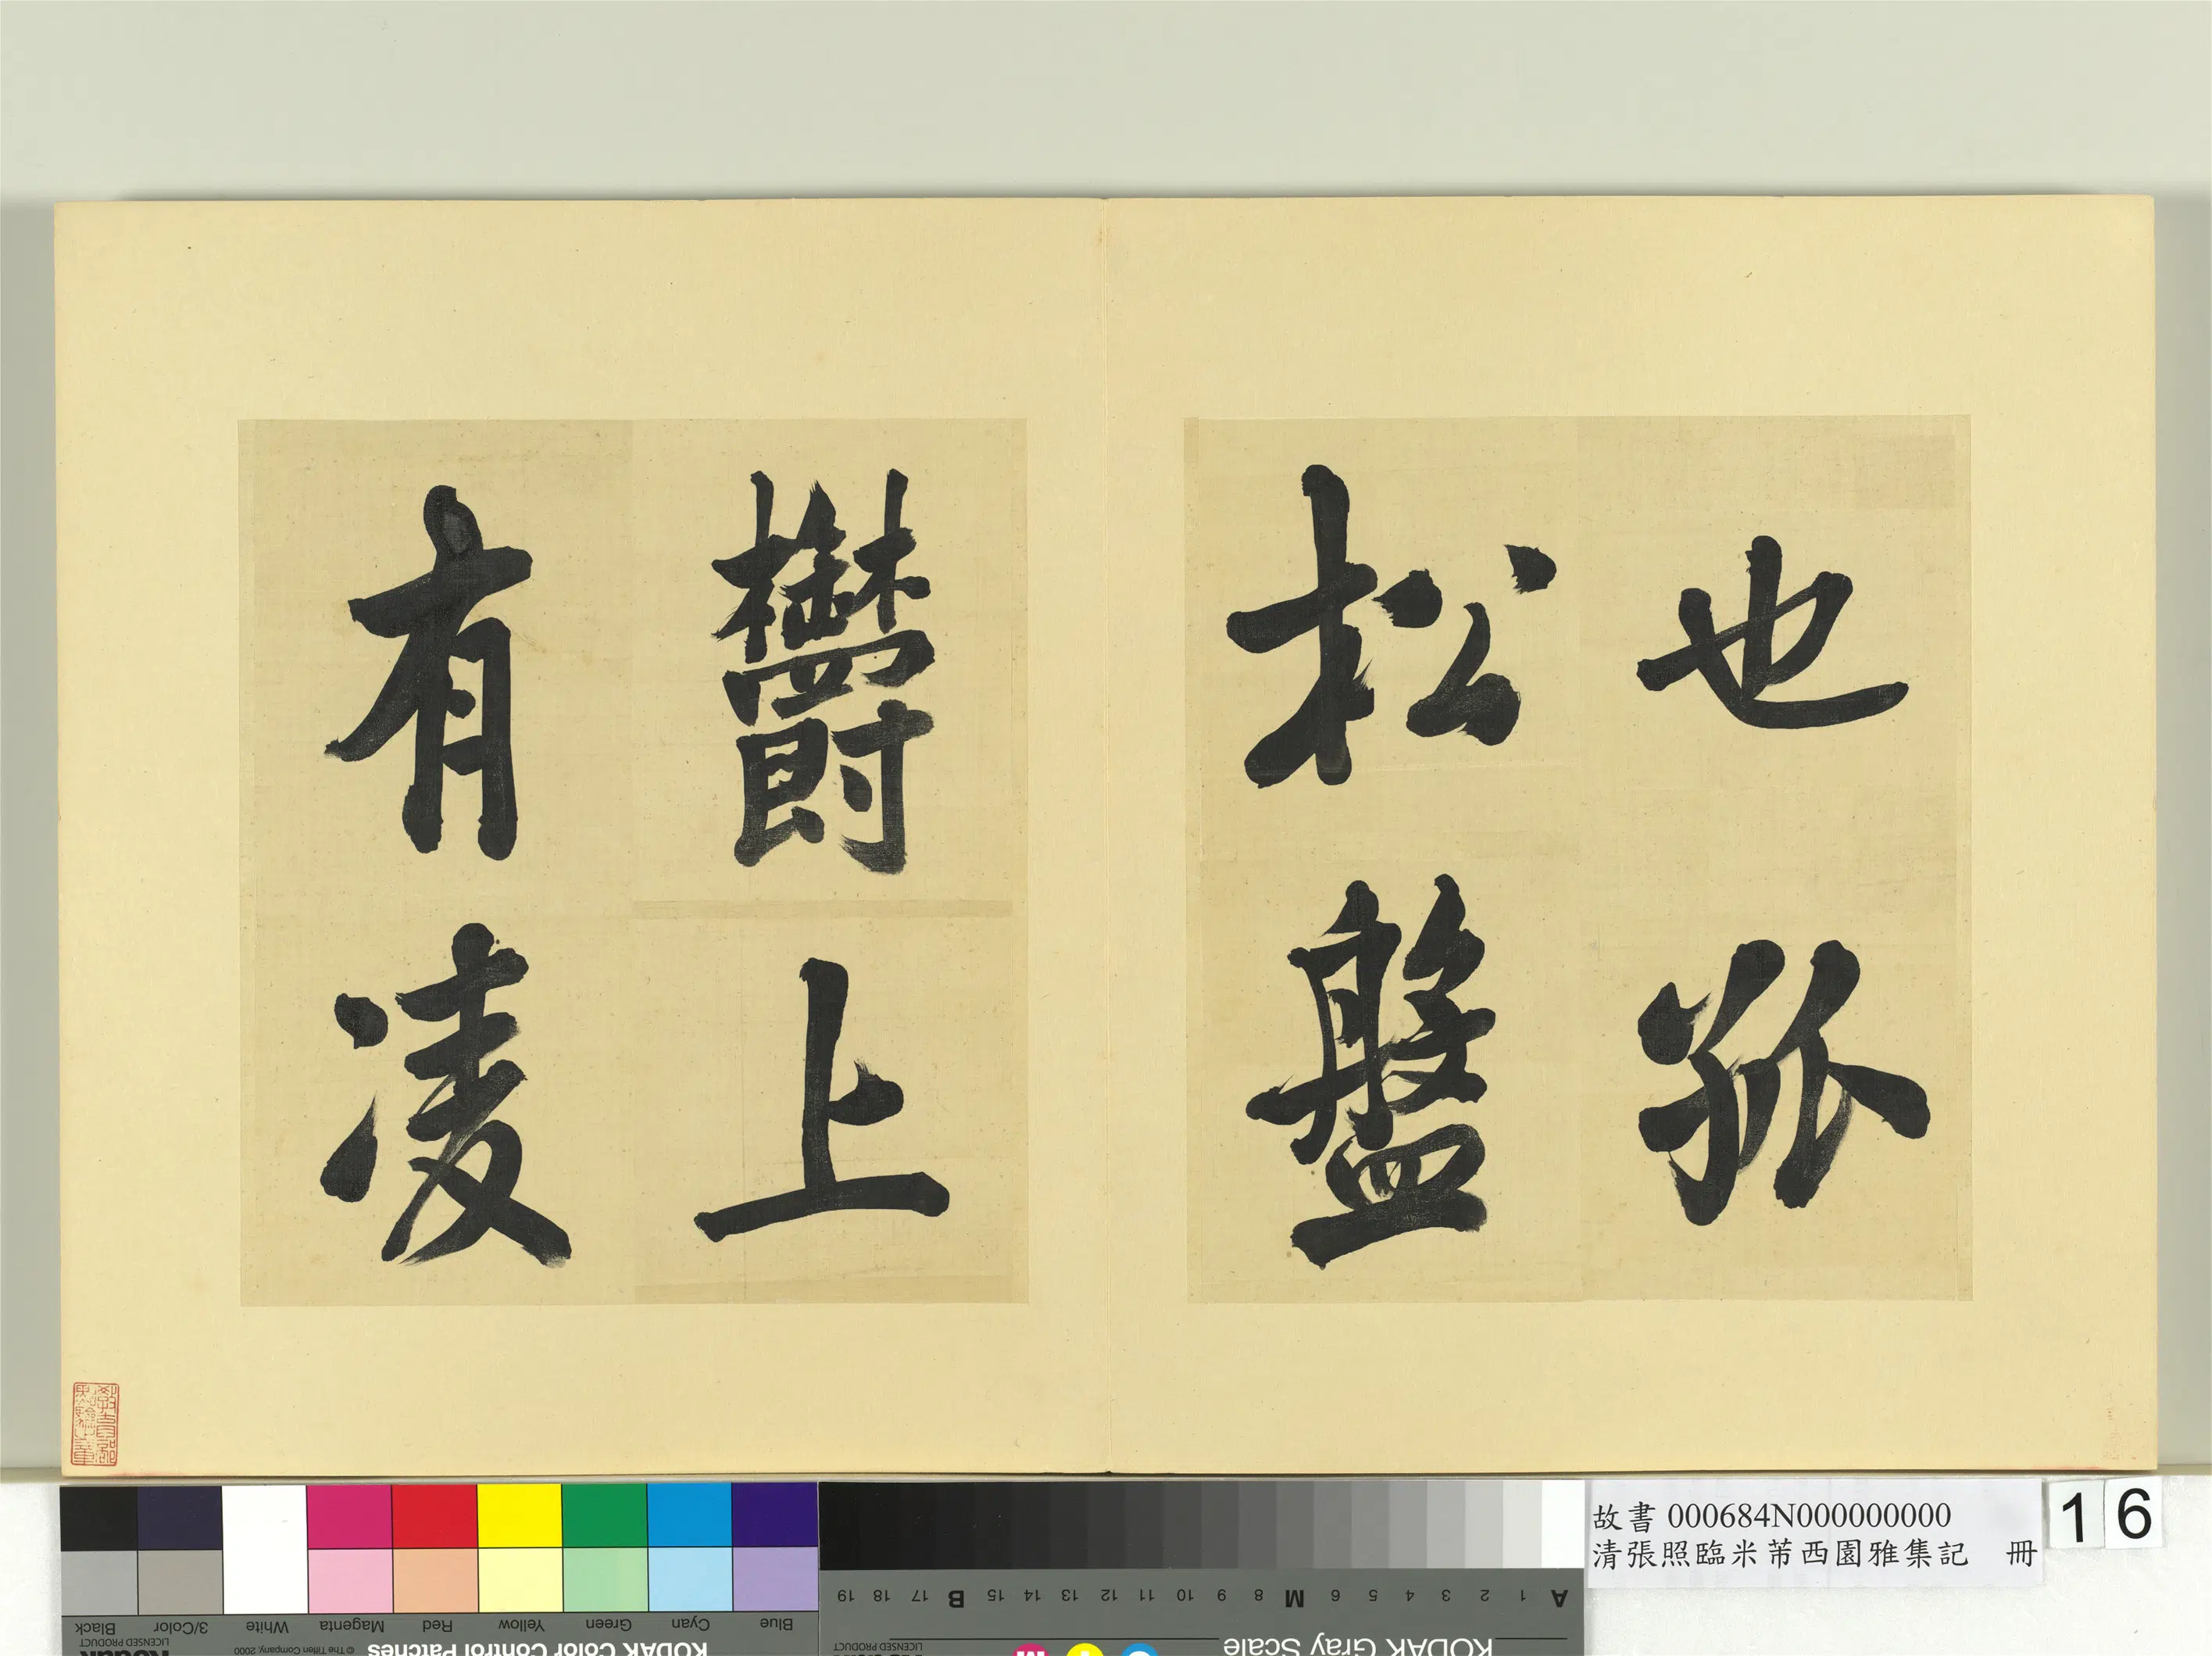 也孤
松盤
欝上
有凌
故書 000684N000000000
清張照臨米芾西園雅集記 冊
16
Black
3/Color
White
Magenta
Red
Yellow
Green
Cyan
Blue
LICENSED PRODUCT
© The Tiffen Company, 2000
KODAK Color Control Patches
19 18 17 B 15 14 13 12 11 10 9 8 M 6 5 4 3 2 1 A
LICENSED PRODUCT
KODAK Gray Scale